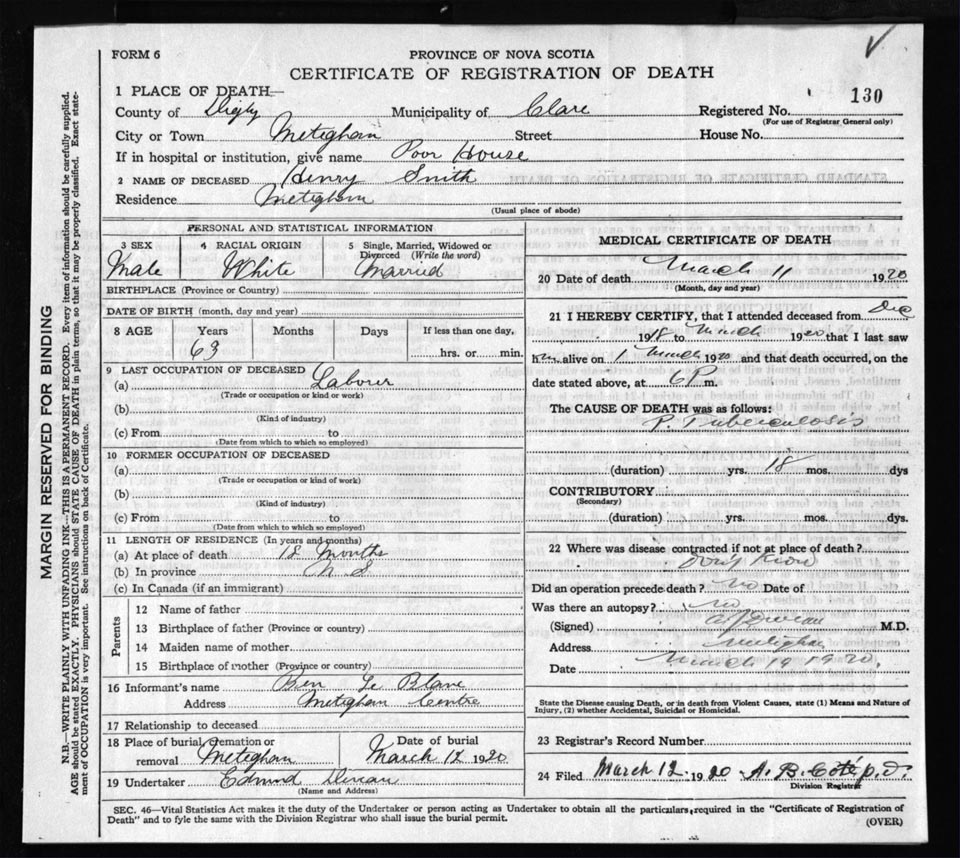 FORM 6
PROVINCE OF NOVA SCOTIA
CERTIFICATE OF REGISTRATION OF DEATH
1 PLACE OF DEATH—
County of Digby Municipality of Clare Registered No. 130
(For use of Registrar General only)
City or Town Meteghan Street House No.
If in hospital or institution, give name Poor House
2 NAME OF DECEASED Henry Smith
Residence Meteghan
(Usual place of abode)
PERSONAL AND STATISTICAL INFORMATION
3 SEX 4 RACIAL ORIGIN 5 Single, Married, Widowed or Divorced (Write the word)
Male White Married
BIRTHPLACE (Province or Country)
DATE OF BIRTH (month, day and year)
8 AGE Years Months Days If less than one day,
63 hrs. or min.
9 LAST OCCUPATION OF DECEASED
(a) Labour
(Trade or occupation or kind or work)
(b)
(Kind of industry)
(c) From to
(Date from which to which so employed)
10 FORMER OCCUPATION OF DECEASED
(a)
(Trade or occupation or kind of work)
(b)
(Kind of industry)
(c) From to
(Date from which to which so employed)
11 LENGTH OF RESIDENCE (In years and months)
(a) At place of death 18 Months
(b) In province N S
(c) In Canada (if an immigrant)
Parents
12 Name of father
13 Birthplace of father (Province or country)
14 Maiden name of mother
15 Birthplace of mother (Province or country)
16 Informant's name Ben Le Blanc
Address Meteghan Centre
17 Relationship to deceased
18 Place of burial, cremation or removal Meteghan Date of burial March 12 1920
19 Undertaker Edmund
(Name and Address)
MEDICAL CERTIFICATE OF DEATH
20 Date of death March 11 1920
(Month, day and year)
21 I HEREBY CERTIFY, that I attended deceased from Dec
1918 to March 1920 that I last saw
him alive on 1 March 1920 and that death occurred, on the
date stated above, at 6 P m.
The CAUSE OF DEATH was as follows:
P. Tuberculosis
(duration) yrs. 18 mos. dys
CONTRIBUTORY
(Secondary)
(duration) yrs. mos. dys.
22 Where was disease contracted if not at place of death?
Don't Know
Did an operation precede death? no Date of
Was there an autopsy? no
(Signed) M.D.
Address Meteghan
Date March 19 1920.
State the Disease causing Death, or in death from Violent Causes, state (1) Means and Nature of
Injury, (2) whether Accidental, Suicidal or Homicidal.
23 Registrar's Record Number
24 Filed March 12 1920 A. B. Coté p.d.
Division Registrar
SEC. 46—Vital Statistics Act makes it the duty of the Undertaker or person acting as Undertaker to obtain all the particulars required in the "Certificate of Registration of
Death" and to fyle the same with the Division Registrar who shall issue the burial permit.
(OVER)
MARGIN RESERVED FOR BINDING
N.B.—WRITE PLAINLY WITH UNFADING INK—THIS IS A PERMANENT RECORD. Every item of information should be carefully supplied.
AGE should be stated EXACTLY. PHYSICIANS should STATE CAUSE OF DEATH in plain terms, so that it may be properly classified. Exact state-
ment of OCCUPATION is very important. See instructions on back of Certificate.